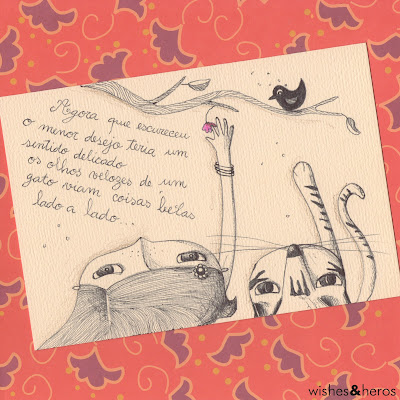 Agora que escureceu
o menor desejo teria um
sentido delicado
os olhos velozes de um
gato viam coisas belas
lado a lado...
wishes&heros